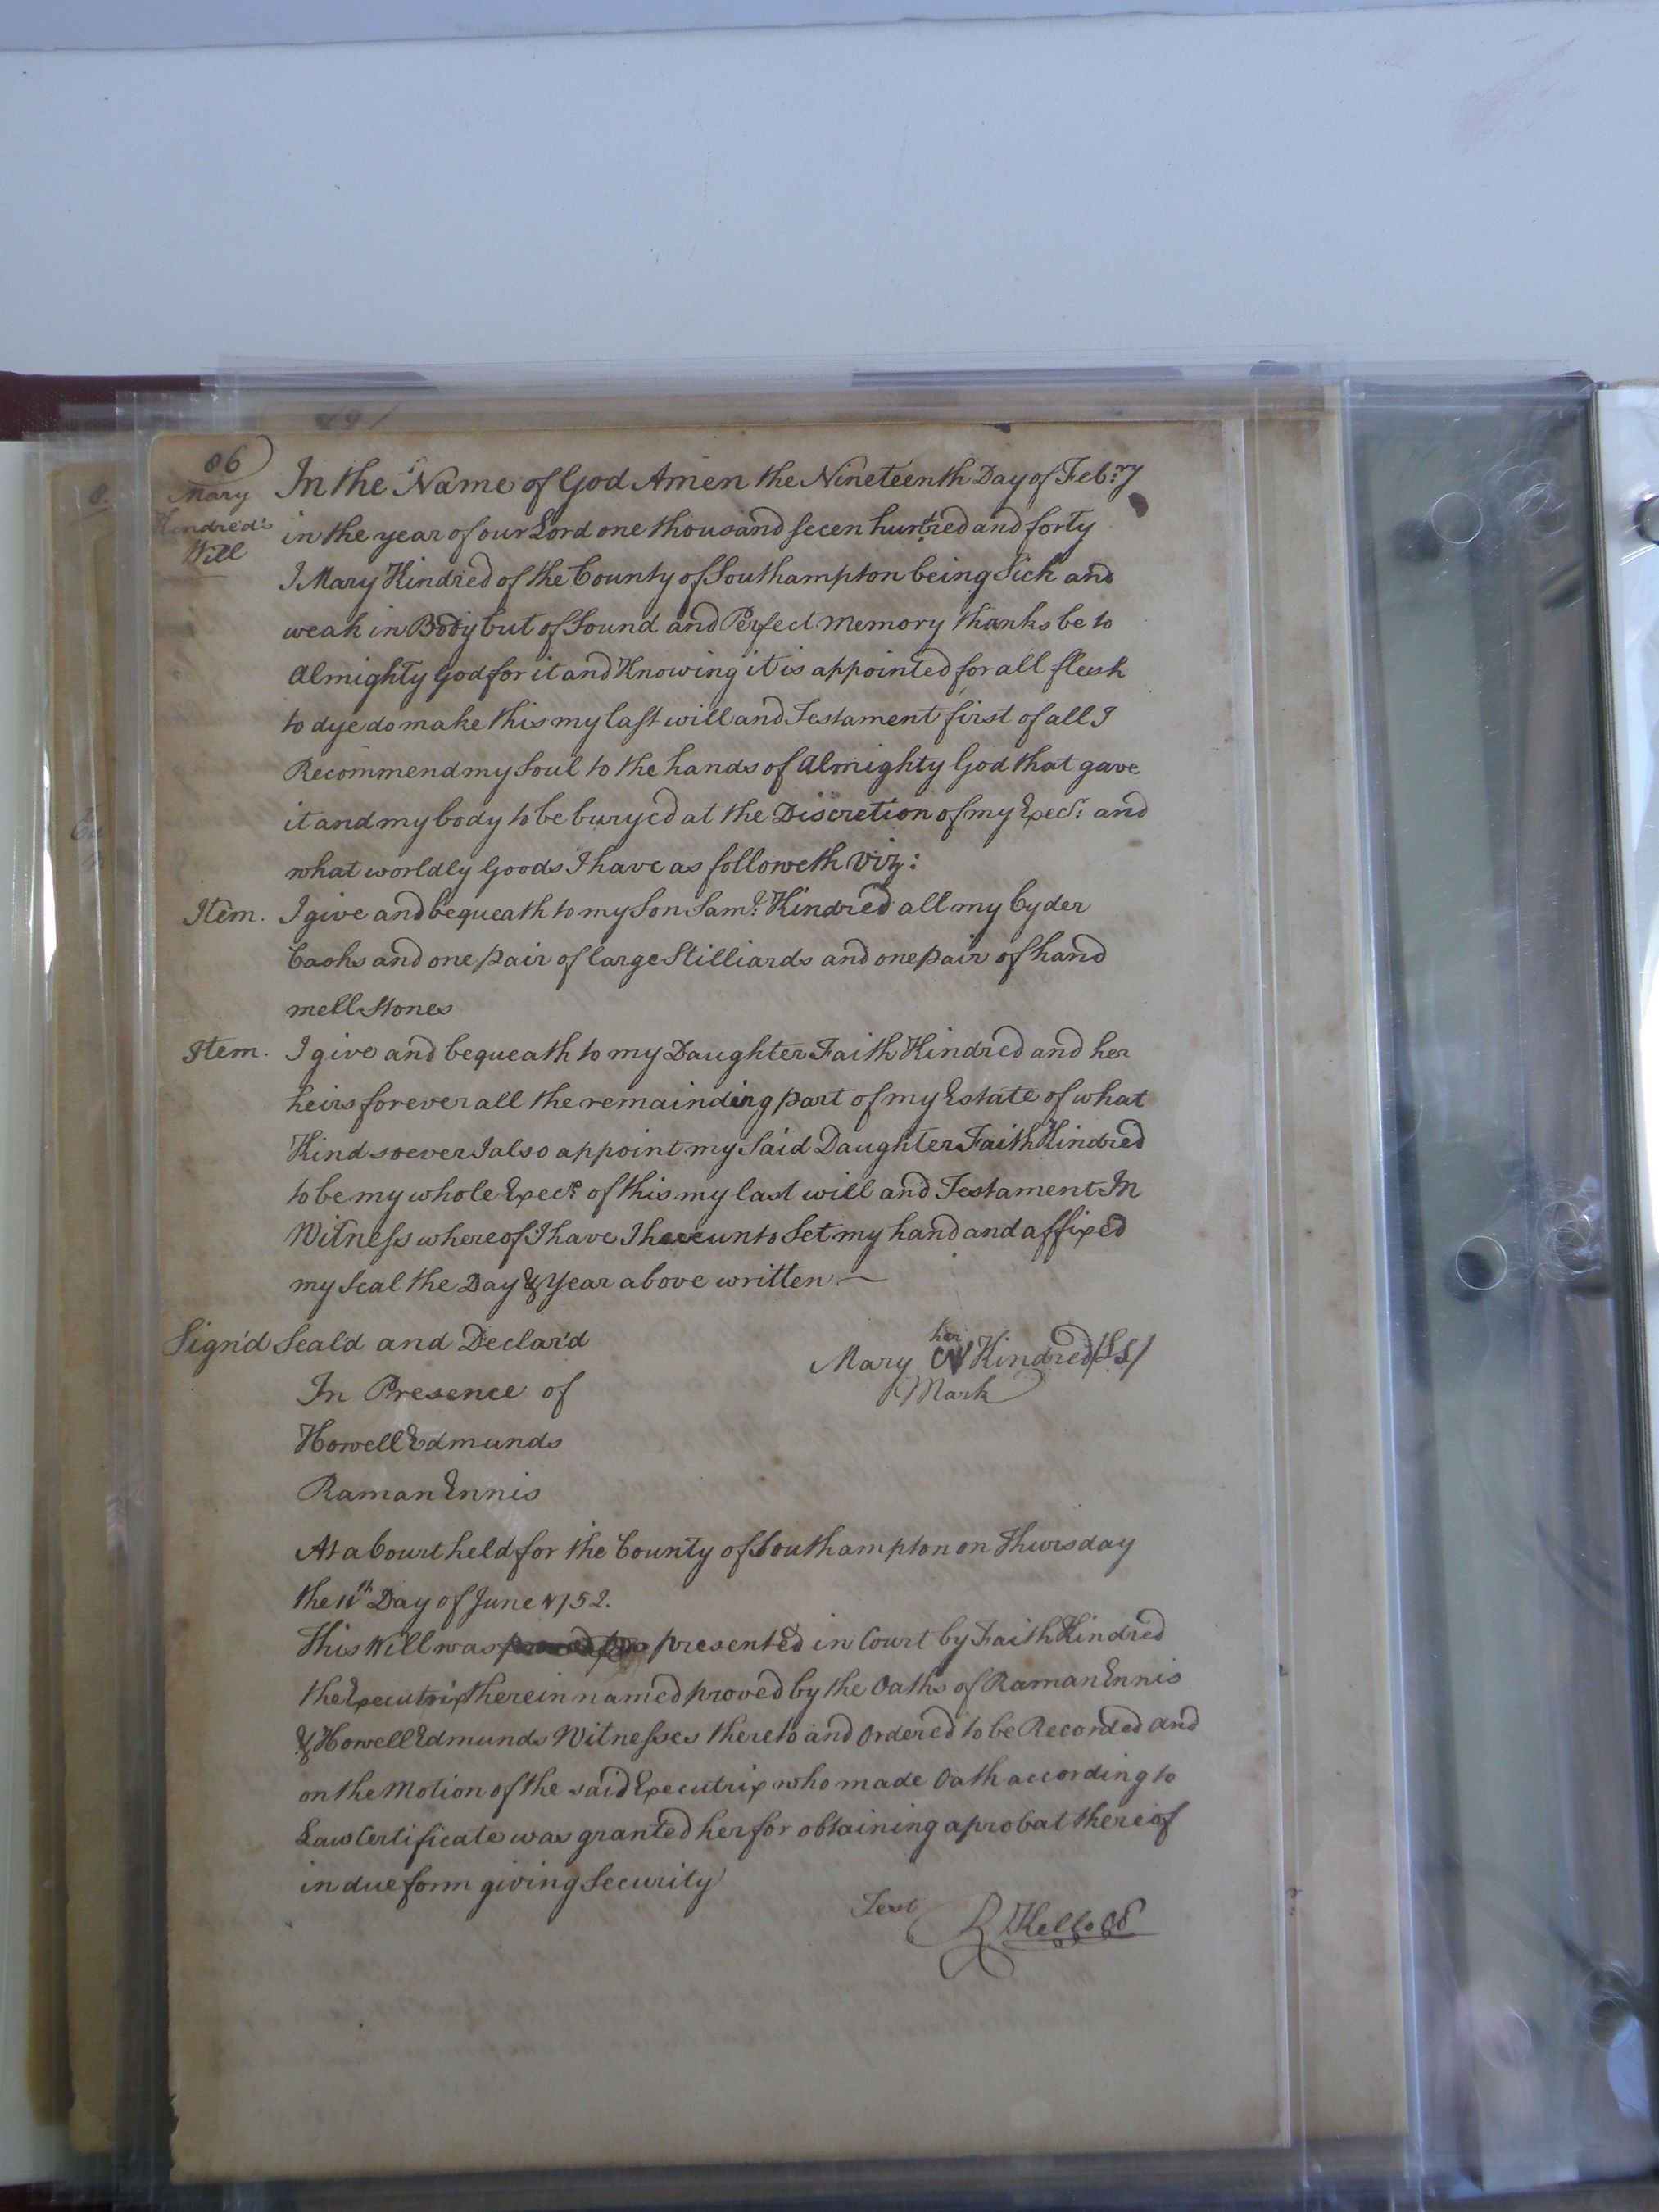 86
Mary
Kindred's
Will
In the Name of God Amen the Nineteenth Day of Feb:ry
in the year of our Lord one thousand secen hundred and forty
I Mary Kindred of the County of Southampton being Sick and
weak in Body but of Sound and Perfect Memory thanks be to
Almighty God for it and Knowing it is appointed for all flesh
to dye do make this my last will and Testament first of all I
Recommend my Soul to the hands of Almighty God that gave
it and my body to be buryed at the Discretion of my Execr: and
what worldly Goods I have as followeth Viz:
Item. I give and bequeath to my Son Saml: Kindred all my Cyder
Casks and one pair of large Stilliards and one pair of hand
mell Stones
Item. I give and bequeath to my Daughter Faith Kindred and her
heirs forever all the remainding part of my Estate of what
Kind soever I also appoint my Said Daughter Faith Kindred
to be my whole Execr. of this my last will and Testament In
Witness whereof I have I hereunto Set my hand and affixed
my Seal the Day & Year above written —
Sign'd Seal'd and Declar'd
In Presence of
her
Mary Kindred (LS)
Mark
Howell Edmunds
Raman Ennis
At a Court held for the County of Southampton on Thursday
the 11th Day of June 1752.
This Will was presented in Court by Faith Kindred
the Executrix therein named proved by the Oaths of Raman Ennis
& Howell Edmunds Witnesses thereto and Ordered to be Recorded and
on the Motion of the said Executrix who made Oath according to
Law Certificate was granted her for obtaining a probat thereof
in due form giving Security
Test R Kello CC